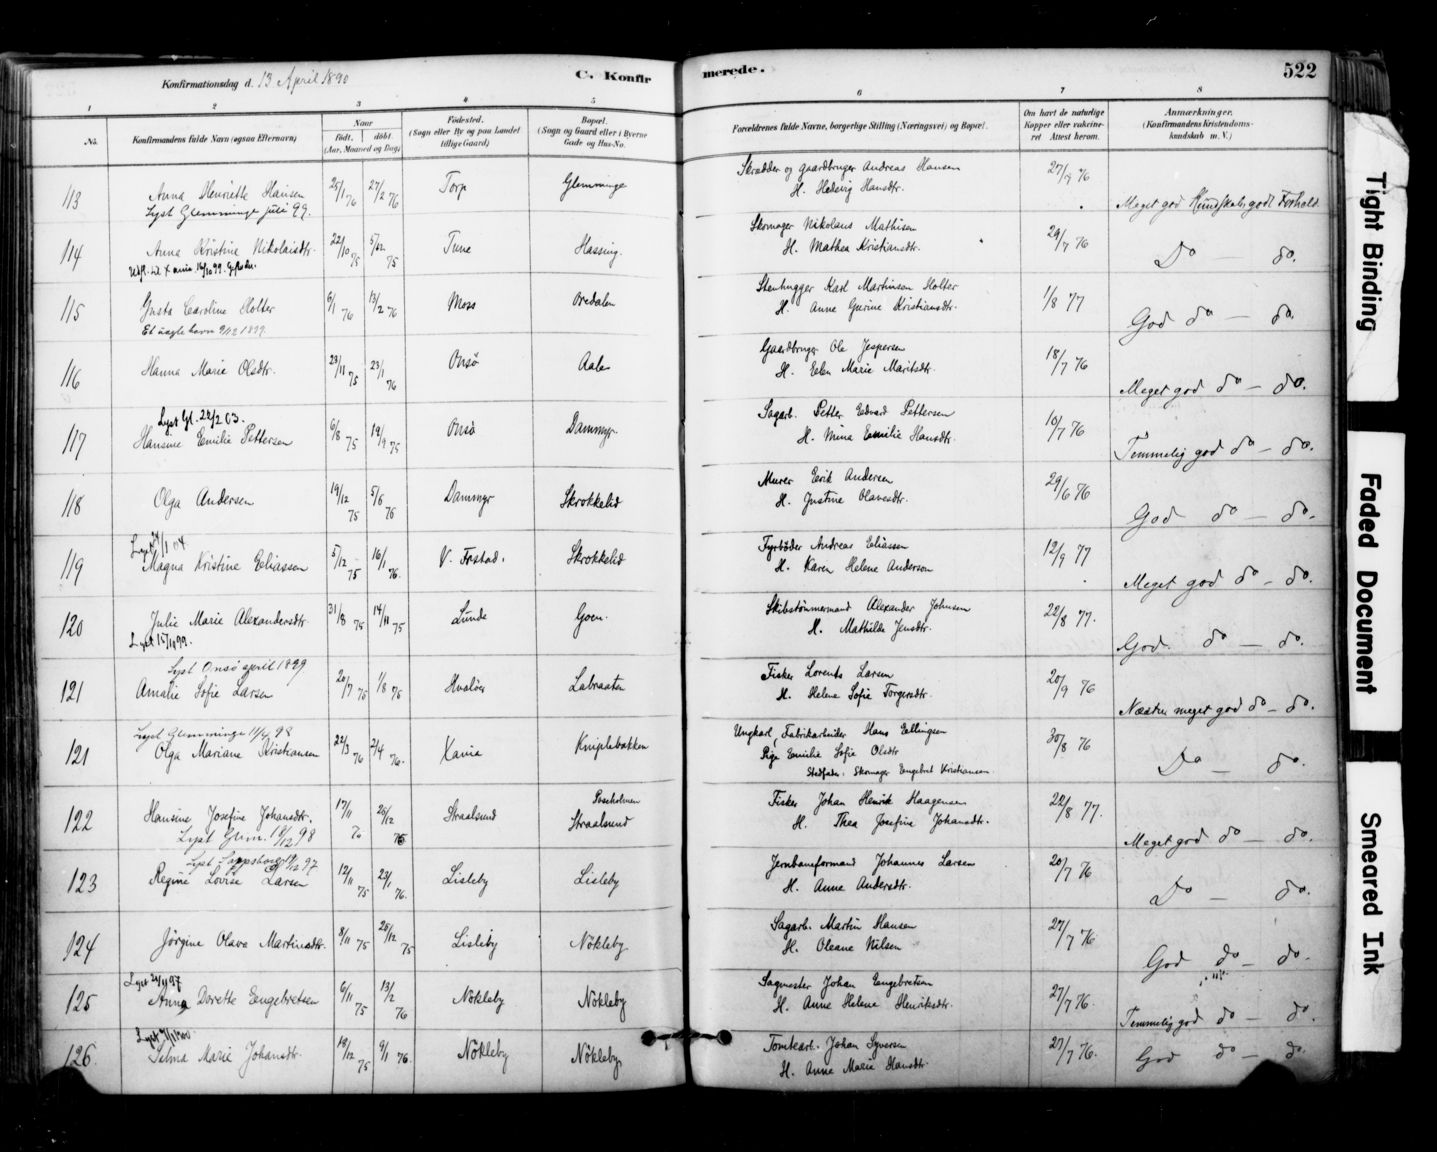 Konfirmationsdag d. 13 April 1890
C. Konfirmerede.
522
1 2 3 4 5 6 7 8
No.
Konfirmandens fulde Navn (ogsaa Efternavn)
Naar
født. døbt.
(Aar, Maaned og Dag)
Fødested.
(Sogn eller By og paa Landet
tillige Gaard)
Bopæl.
(Sogn og Gaard eller i Byerne
Gade og Hus-No.
Forældrenes fulde Navne, borgerlige Stilling (Næringsvei) og Bopæl.
Om havt de naturlige
Kopper eller vaccine-
ret Attest herom.
Anmærkninger.
(Konfirmandens Kristendoms-
kundskab m. V.)
113 Anna Henriette Hansen 25/1 76 27/2 76 Torp Glemminge Skrædder og Gaardbruger Andreas Hansen 27/7 76 Meget god Kundskab godt Forhold
Lyst Glemminge juli 99. H. Hedvig Hansdtr.
114 Anna Kristine Nikolaisdtr. 22/10 75 5/12 75 Tune Hassing. Skomager Nikolaus Mathisen 29/7 76 Do — do.
H. Mathea Kristiansdtr.
115 Gusta Caroline Holter 6/1 76 13/2 76 Moss Oredalen Stenhugger Karl Martinsen Holter 1/8 77 God do — do.
H. Anne Gurine Kristiansdtr.
116 Hanna Marie Olsdtr. 23/11 75 23/1 76 Onsø Aale Gaardbruger Ole Jespersen 18/7 76 Meget god do — do.
H. Elen Marie Maritsdtr.
Lyst Gl. 22/2 03.
117 Hansine Emilie Pettersen 6/8 75 19/9 75 Onsø Dammyr. Sagarb. Petter Edvard Pettersen 10/7 76 Temmelig god do — do.
H. Mina Emilie Hansdtr.
118 Olga Andersen 19/12 75 5/6 76 Dammyr Skrokkelid Murer Erik Andersen 29/6 76 God do — do.
H. Justine Olavesdtr.
119 Magna Kristine Eliassen 5/12 75 16/1 76. V. Fredstad. Skrokkelid Fyrbøder Andreas Eliassen 12/9 77 Meget god do — do.
H. Karen Helene Anderson
120 Julie Marie Alexandersdtr. 31/8 75 14/11 75 Lunde Goen. Skibstømmermand Alexander Johnsen 22/8 77. God do — do.
Lyst 15/1 99. H. Mathilde Jensdtr.
Lyst Onsø april 1899
121 Amalie Sofie Larsen 20/7 75 1/8 75 Hvaløer Labraaten Fisker Lorents Larsen 20/9 76 Næsten meget god do — do.
H. Helene Sofie Torgersdtr.
Lyst Glemminge 11/4 98
121 Olga Mariane Kristiansen 22/3 76 2/4 76. Xania Kniplebakken Ungkarl, Fabrikarbeider Hans Ellingsen 30/8 76 Do — do.
Pige Emilie Sofie Olsdtr
Stedfader: Skomager Engebret Kristiansen.
122 Hansine Josefine Johansdtr. 17/11 76 26/12 76 Straalsund Straalsund Fisker Johan Henrik Haagensen 22/8 77. Meget god do — do.
H. Thea Josefine Johansdtr.
123 Regine Lovise Larsen 12/11 75 23/1 76. Lisleby Lisleby Jernbaneformand Johannes Larsen 20/7 76 Do — do.
H. Anne Andersdtr.
124 Jørgine Olava Martinsdtr. 8/11 75 26/12 75 Lisleby Nøkleby. Sagarb. Martin Hansen 27/7 76 God do — do.
H. Oleane Nilsen
Lyst 24/11 97
125 Anna Dorette Engebretsen 6/11 75 13/2 76 Nøkleby Nøkleby Sagmester Johan Engebretsen 27/7 76. Temmelig god do — do.
H. Anne Helene Henriksdtr.
126. Selma Marie Johansdtr. 18/12 75 9/1 76. Nøkleby Nøkleby. Tomtearb. Johan Syversen 27/7 76. God do — do.
H. Anne Marie Hansdtr.
Tight Binding
Faded Document
Smeared Ink